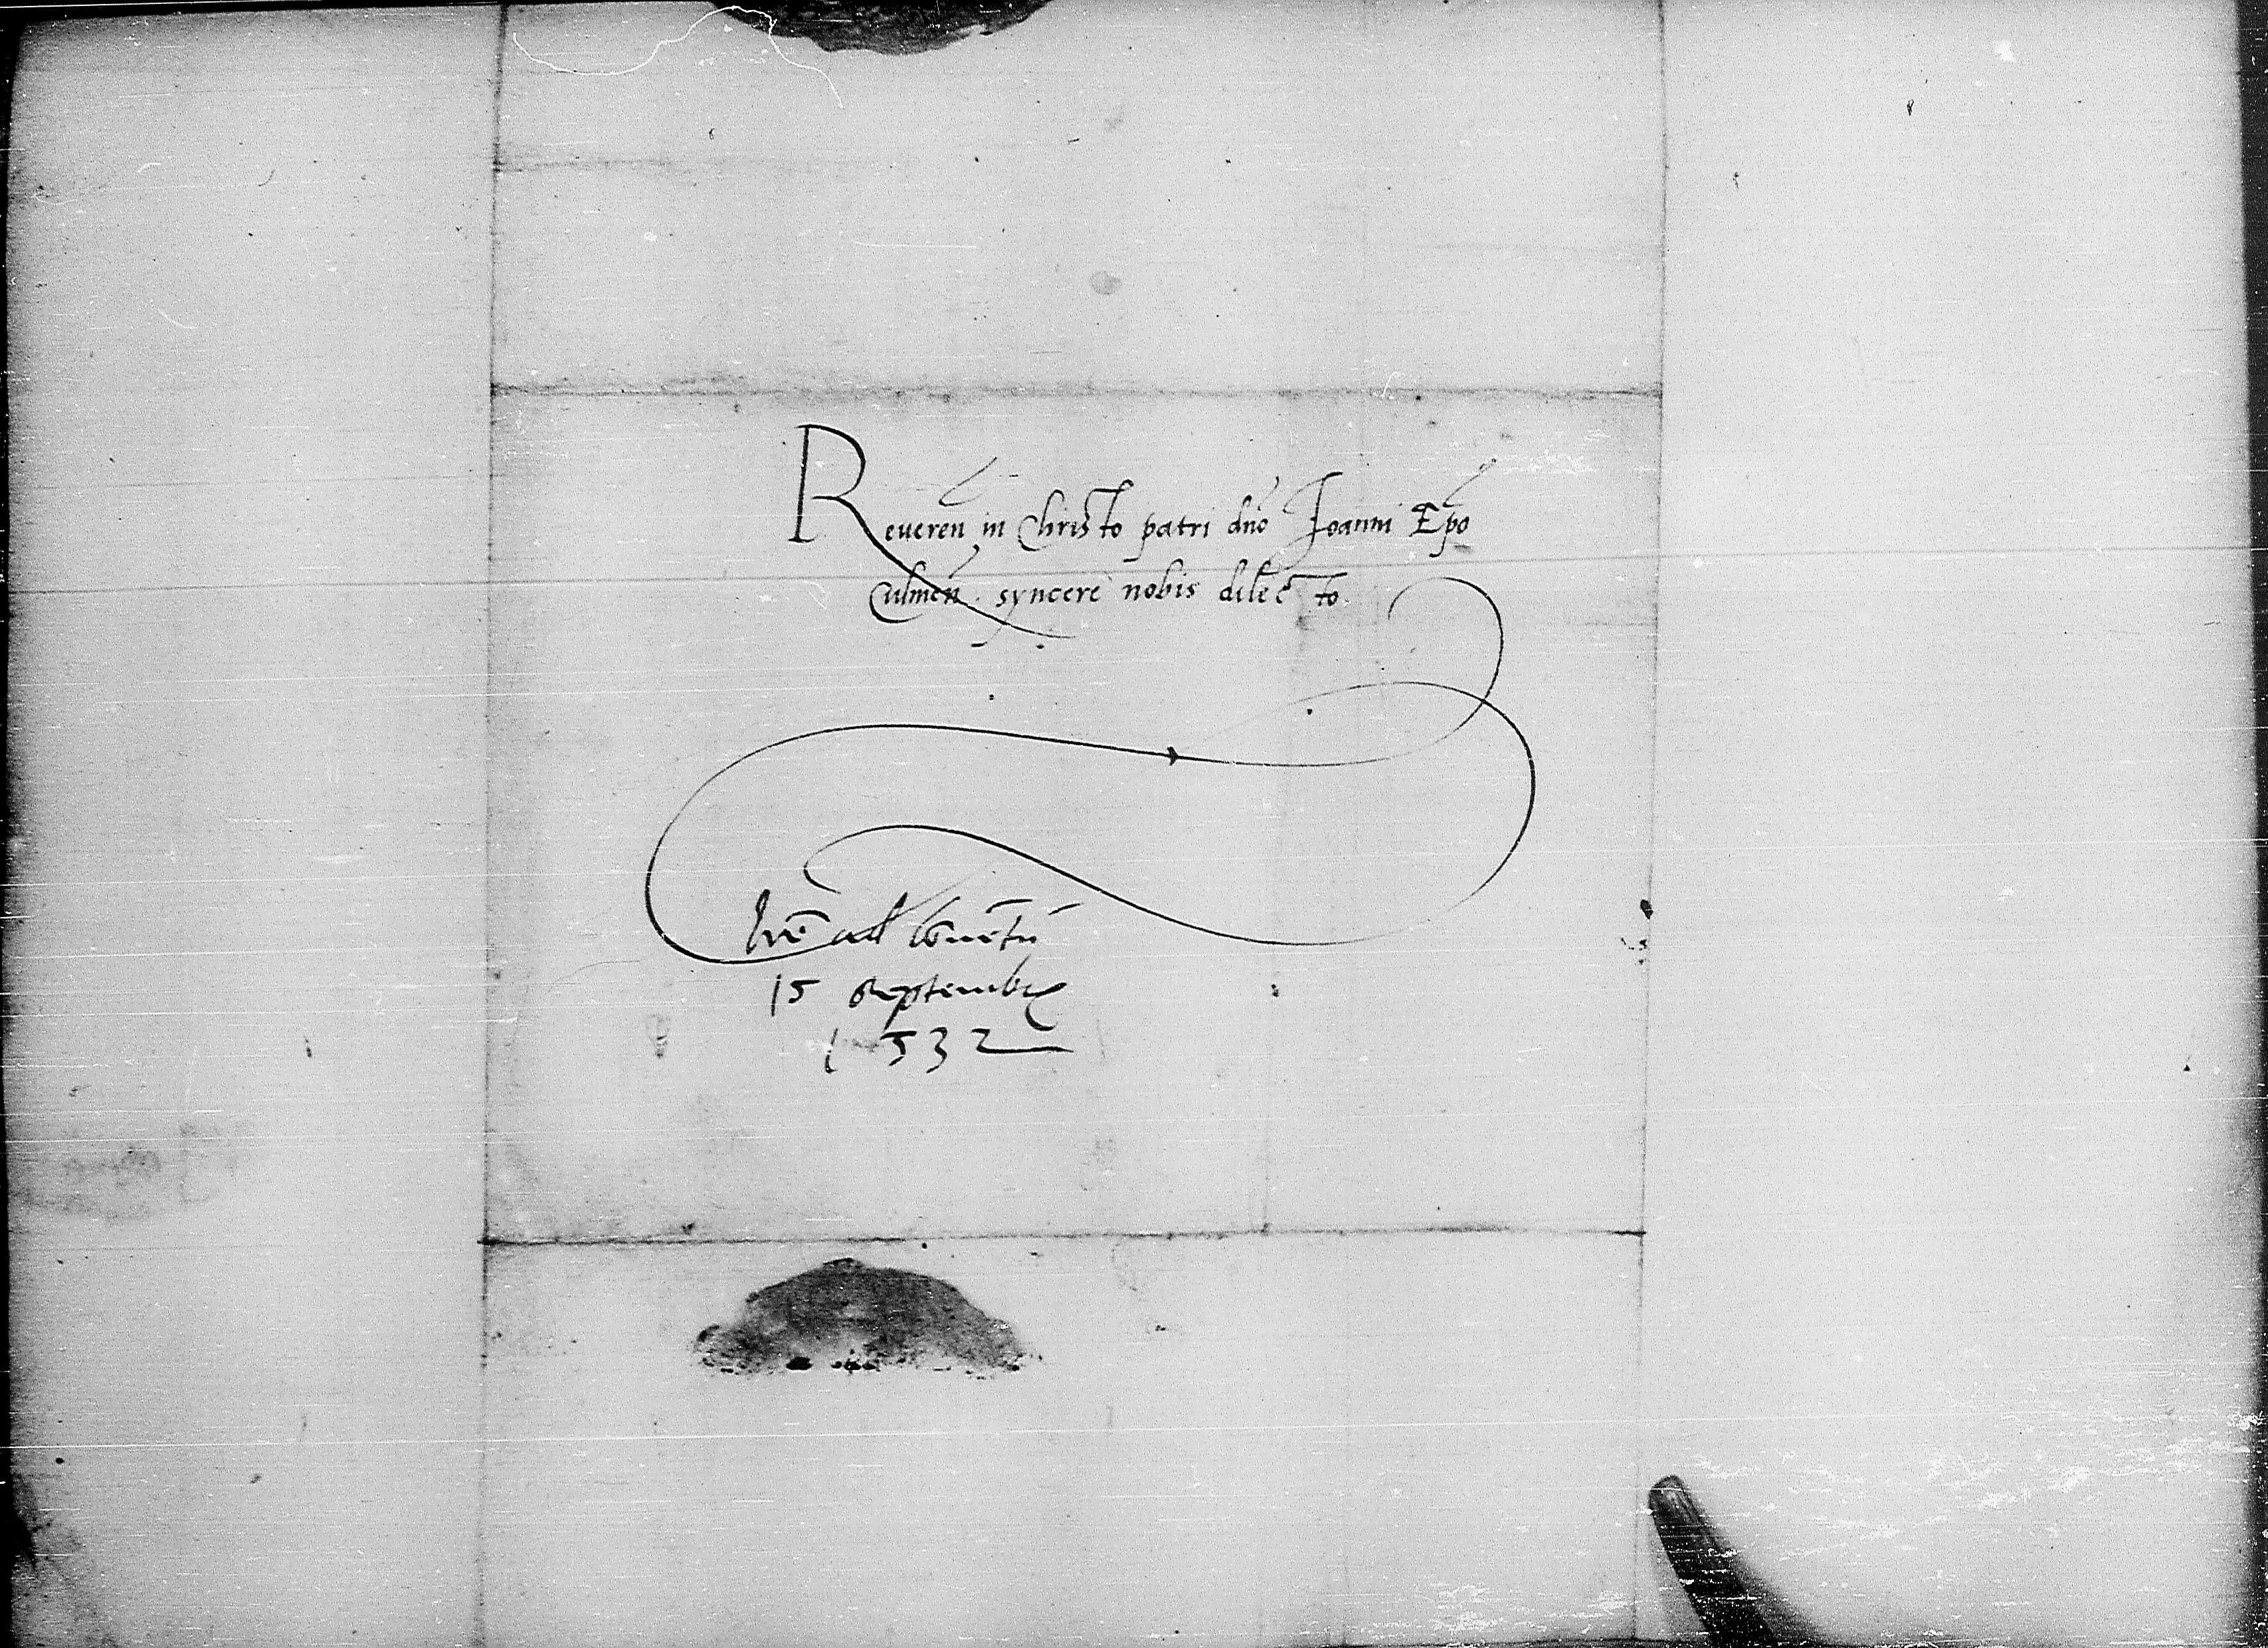 Reueren̄ in Christo patri dn̄o Joanni Ep̄o
Culmen̄. syncere nobis dilecto
ad Conuētū
15 Septembris
1532